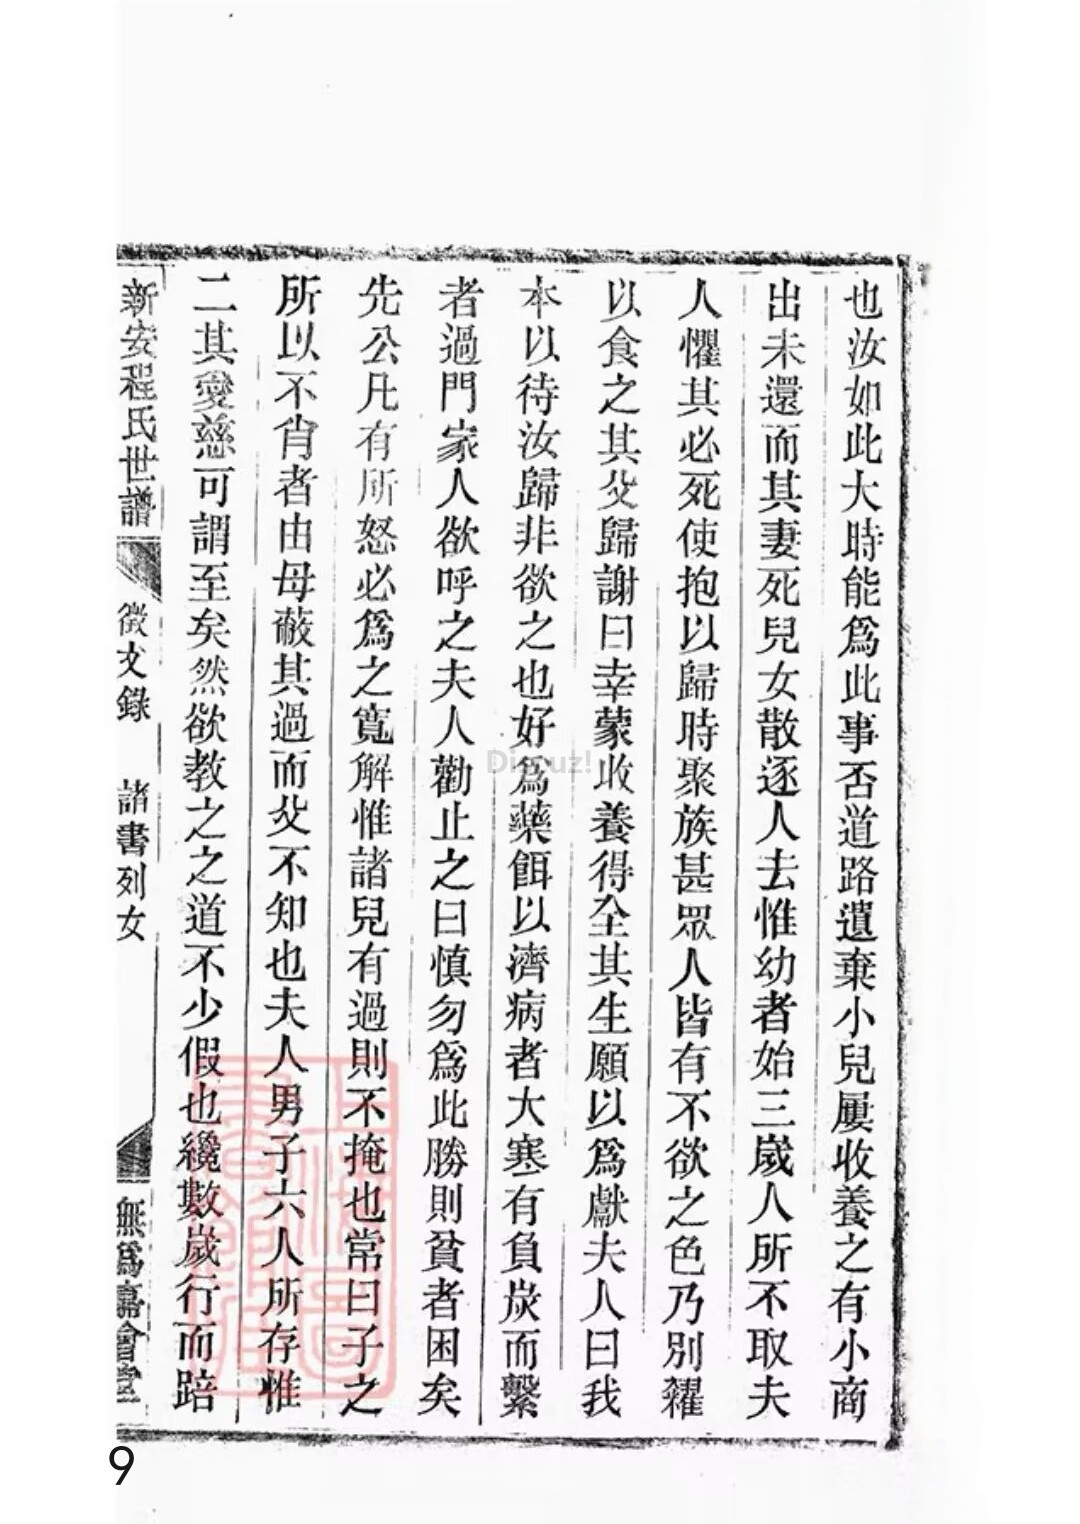 也汝如此大時能爲此事否道路遺棄小兒屢收養之有小商
出未還而其妻死兒女散逐人去惟幼者始三歲人所不取夫
人懼其必死使抱以歸時聚族甚眾人皆有不欲之色乃別糴
以食之其父歸謝曰幸蒙收養得全其生願以爲獻夫人曰我
本以待汝歸非欲之也好爲藥餌以濟病者大寒有負炭而繫
者過門家人欲呼之夫人勸止之曰慎勿爲此勝則貧者困矣
先公凡有所怒必爲之寬解惟諸兒有過則不掩也常曰子之
所以不肖者由母蔽其過而父不知也夫人男子六人所存惟
二其愛慈可謂至矣然欲教之之道不少假也纔數歲行而踣
新安程氏世譜 徵文錄 諸書列女 無爲嘉會堂
Discuz!
9